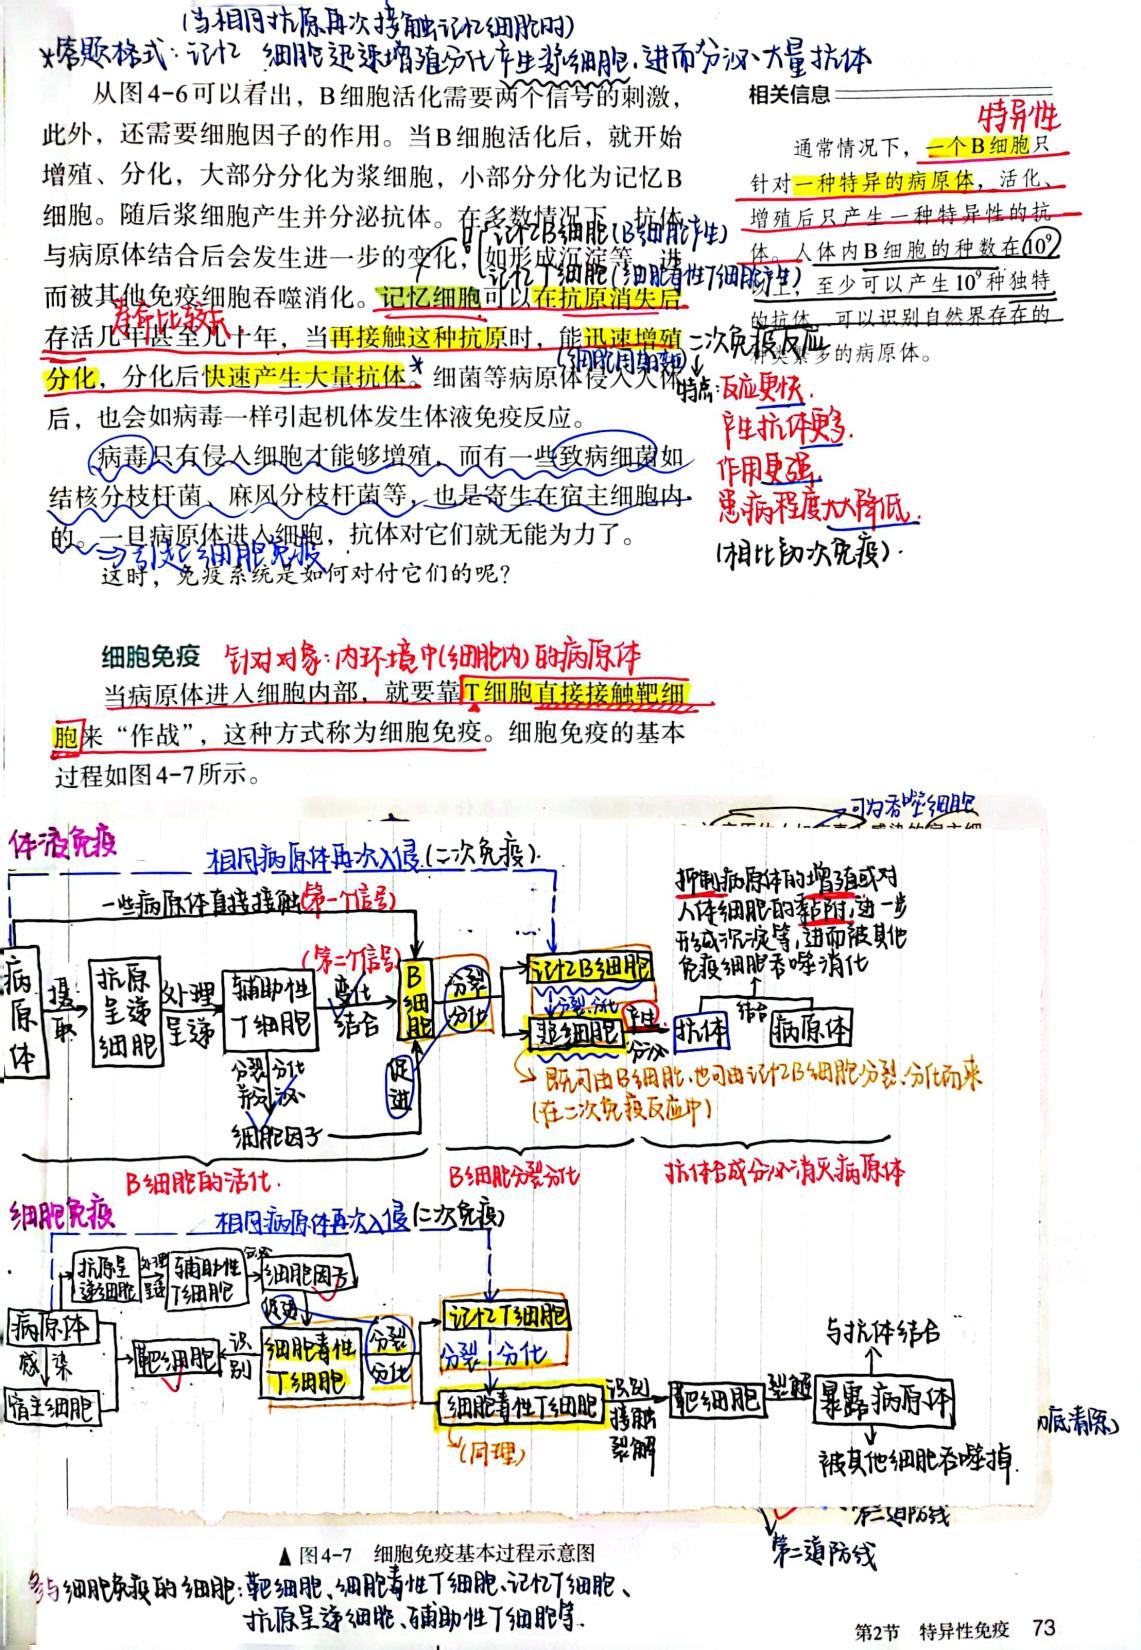 (当相同抗原再次接触记忆细胞时)
*答题格式:记忆 细胞迅速增殖分化产生浆细胞,进而分泌大量抗体
从图4-6可以看出，B细胞活化需要两个信号的刺激，
此外，还需要细胞因子的作用。当B细胞活化后，就开始
增殖、分化，大部分分化为浆细胞，小部分分化为记忆B
细胞。随后浆细胞产生并分泌抗体。在多数情况下，抗体
与病原体结合后会发生进一步的变化，如形成沉淀等，进
而被其他免疫细胞吞噬消化。记忆细胞可以在抗原消失后
存活几年甚至几十年，当再接触这种抗原时，能迅速增殖
分化，分化后快速产生大量抗体。*细菌等病原体侵入人体
后，也会如病毒一样引起机体发生体液免疫反应。
记忆B细胞(B细胞产生)
记忆T细胞(细胞毒性T细胞产生)
寿命比较长
(细胞周期短)
病毒只有侵入细胞才能够增殖，而有一些致病细菌如
结核分枝杆菌、麻风分枝杆菌等，也是寄生在宿主细胞内
的。一旦病原体进入细胞，抗体对它们就无能为力了。
→引起细胞免疫
这时，免疫系统是如何对付它们的呢？
相关信息
特异性
通常情况下，一个B细胞只
针对一种特异的病原体，活化、
增殖后只产生一种特异性的抗
体。人体内B细胞的种数在10⁹
以上，至少可以产生10⁹种独特
的抗体，可以识别自然界存在的
种类繁多的病原体。
二次免疫反应
特点:反应更快.
产生抗体更多.
作用更强.
患病程度大大降低.
(相比初次免疫).
细胞免疫 针对对象:内环境中(细胞内)的病原体
当病原体进入细胞内部，就要靠T细胞直接接触靶细
胞来“作战”，这种方式称为细胞免疫。细胞免疫的基本
过程如图4-7所示。
可为吞噬细胞
体液免疫
相同病原体再次入侵(二次免疫).
一些病原体直接接触(第一个信号)
(第二个信号)
病原体
摄取
抗原呈递细胞
处理呈递
辅助性T细胞
变化
结合
B细胞
分裂
分化
记忆B细胞
分裂分化
浆细胞
产生
分泌
抗体
结合
病原体
抑制病原体的增殖或对
人体细胞的黏附,进一步
形成沉淀等,进而被其他
免疫细胞吞噬消化
分裂分化
分泌
细胞因子
促进
既可由B细胞,也可由记忆B细胞分裂、分化而来
(在二次免疫反应中)
B细胞的活化.
B细胞分裂分化
抗体合成分泌消灭病原体
细胞免疫
相同病原体再次入侵(二次免疫)
抗原呈递细胞
处理呈递
辅助性T细胞
分泌
细胞因子
促进
病原体
感染
宿主细胞
靶细胞
识别
细胞毒性T细胞
分裂
分化
记忆T细胞
分裂 分化
细胞毒性T细胞
(同理)
识别
接触
裂解
靶细胞
裂解
暴露病原体
与抗体结合
被其他细胞吞噬掉.
彻底清除)
第三道防线
第二道防线
▲图4-7 细胞免疫基本过程示意图
参与细胞免疫的细胞:靶细胞、细胞毒性T细胞、记忆T细胞、
抗原呈递细胞、辅助性T细胞等.
第2节 特异性免疫 73